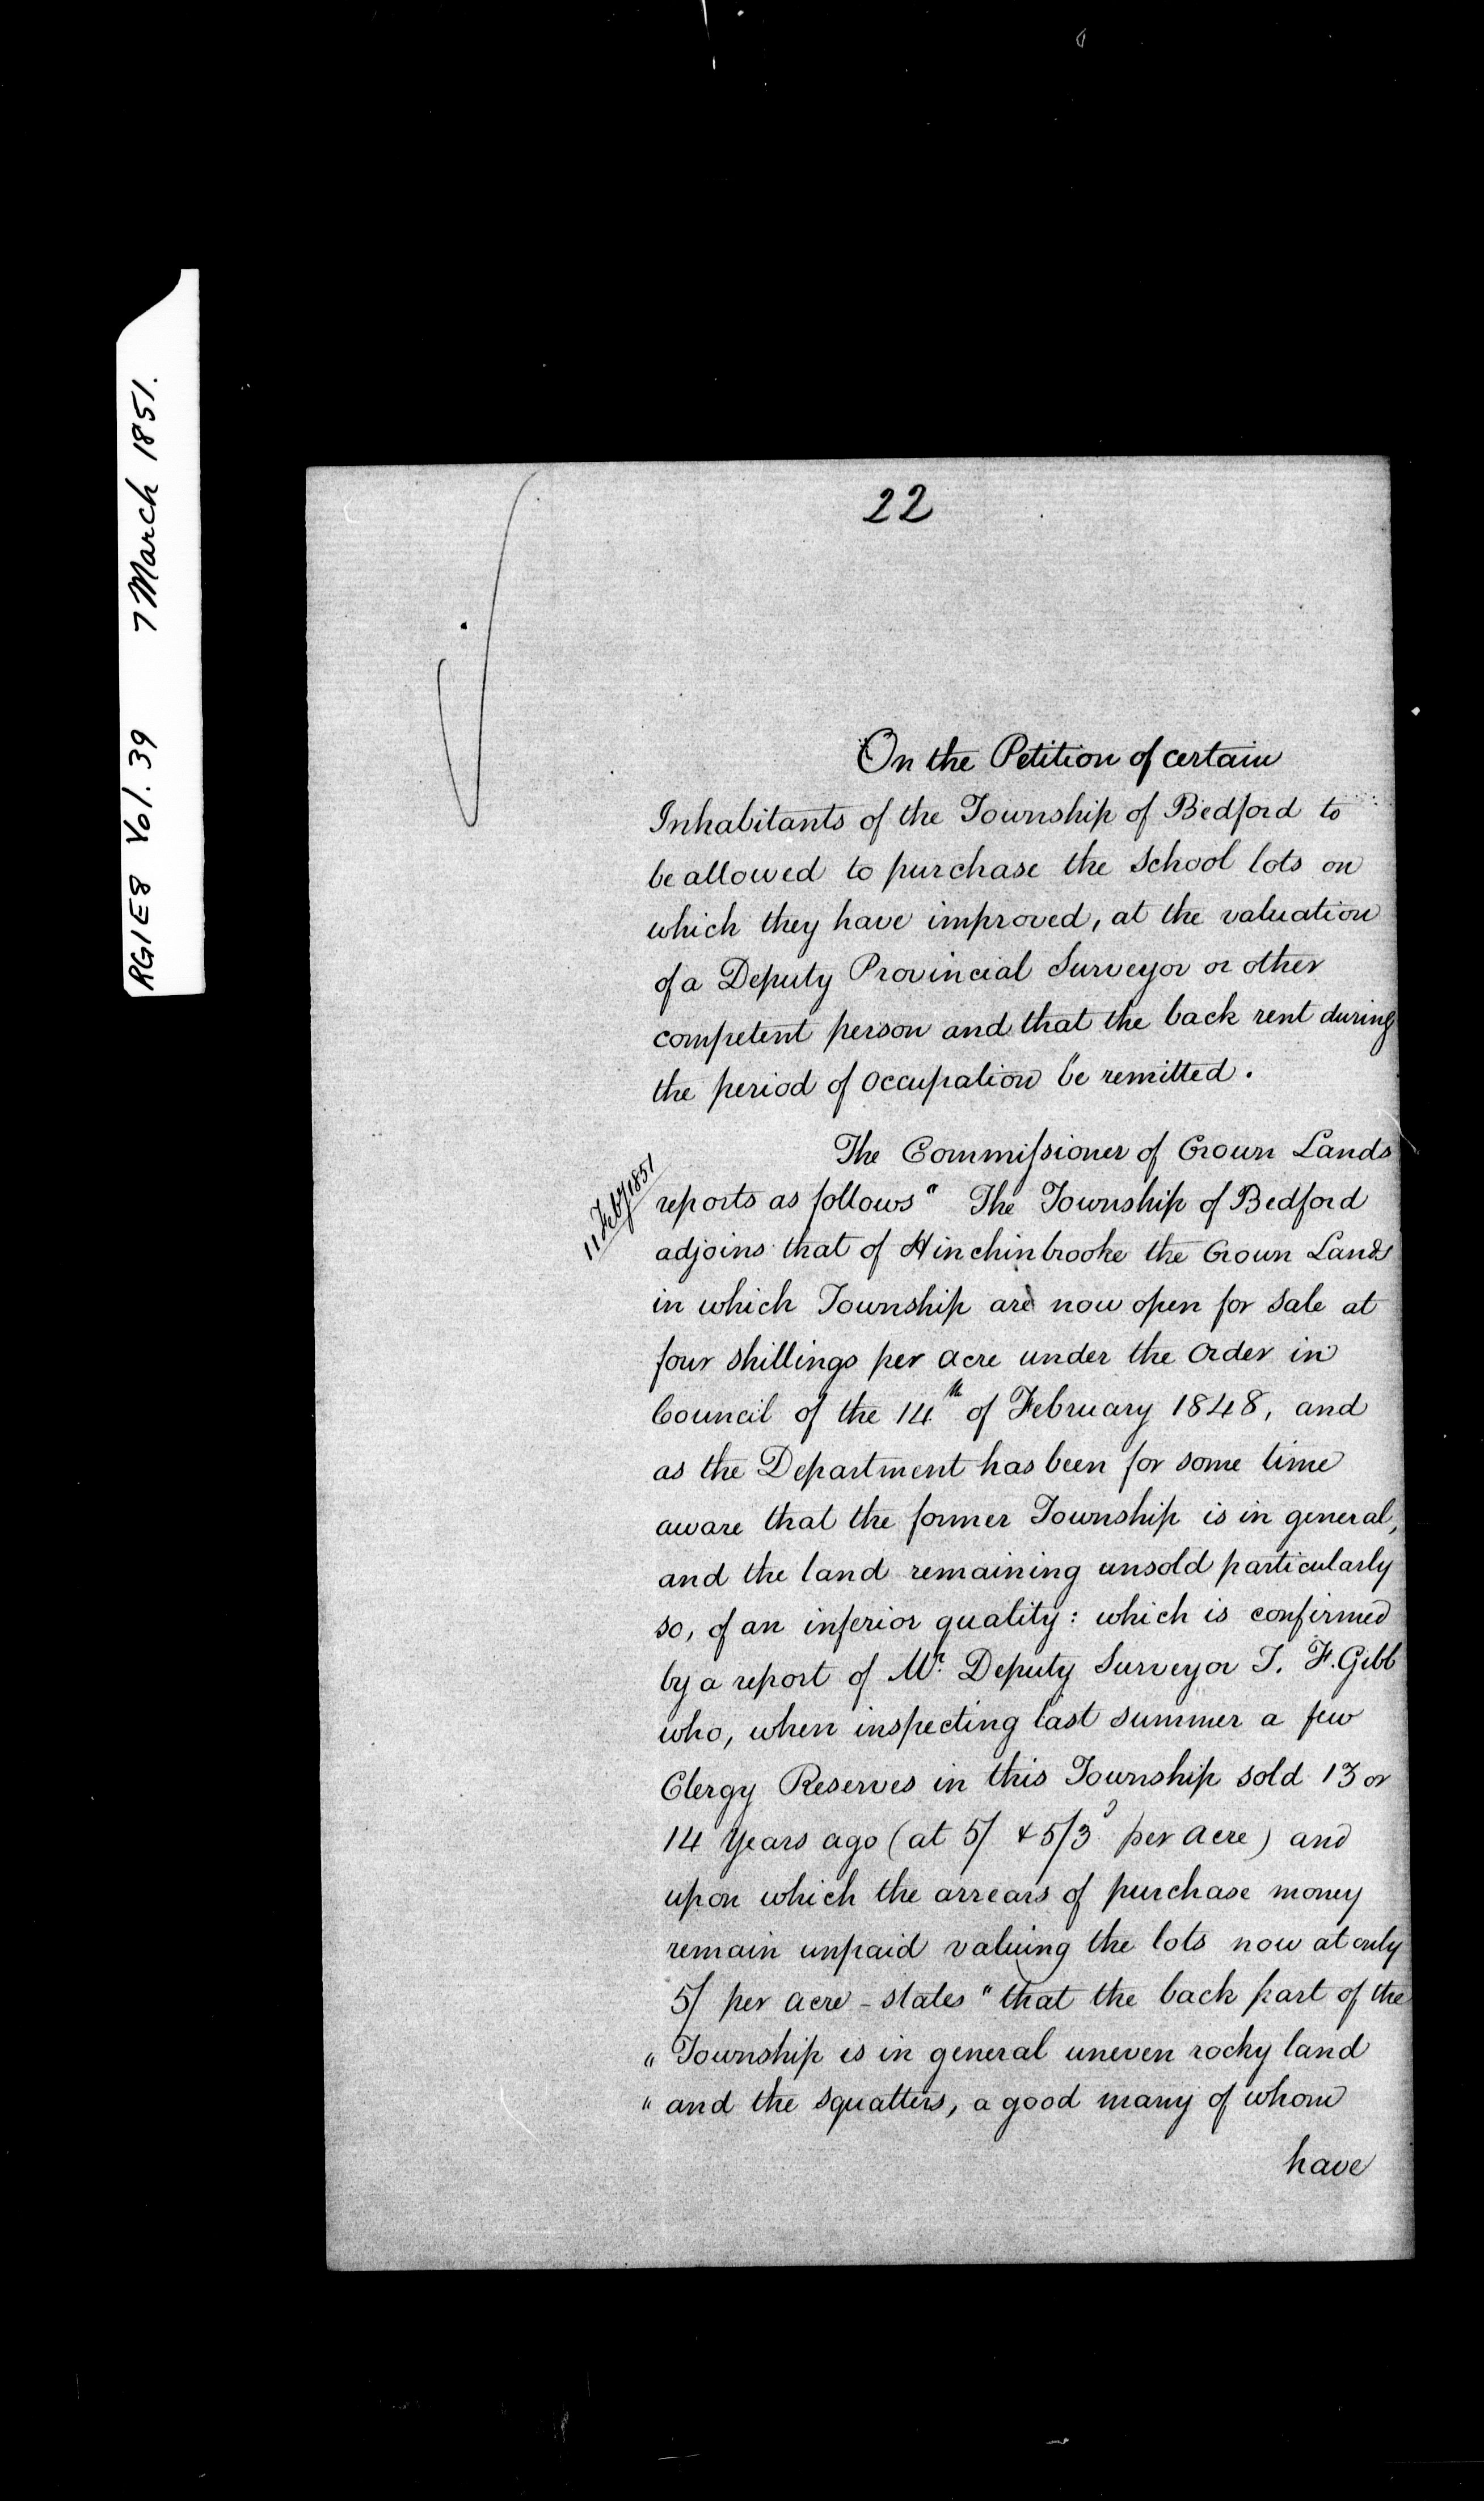 RG1E8 Vol. 39 7 March 1851.
22
On the Petition of certain
Inhabitants of the Township of Bedford to
be allowed to purchase the School lots on
which they have improved, at the valuation
of a Deputy Provincial Surveyor or other
competent person and that the back rent during
the period of occupation be remitted.
The Commissioner of Crown Lands
11 Feby 1851
reports as follows " The Township of Bedford
adjoins that of Hinchinbrooke the Crown Lands
in which Township are now open for sale at
four shillings per acre under the Order in
Council of the 14th of February 1848, and
as the Department has been for some time
aware that the former Township is in general,
and the land remaining unsold particularly
so, of an inferior quality: which is confirmed
by a report of Mr. Deputy Surveyor T. F. Gibb
who, when inspecting last summer a few
Clergy Reserves in this Township sold 13 or
14 years ago (at 5/ & 5/3d per acre) and
upon which the arrears of purchase money
remain unpaid valuing the lots now at only
5/ per acre - states "that the back part of the
" Township is in general uneven rocky land
" and the squatters, a good many of whom
have